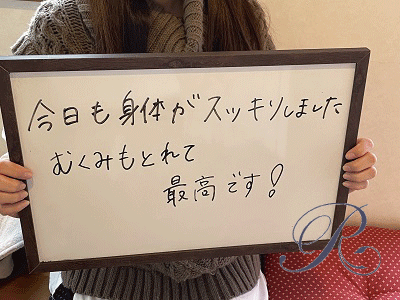 今日も身体がスッキリしました
むくみもとれて
最高です!
R